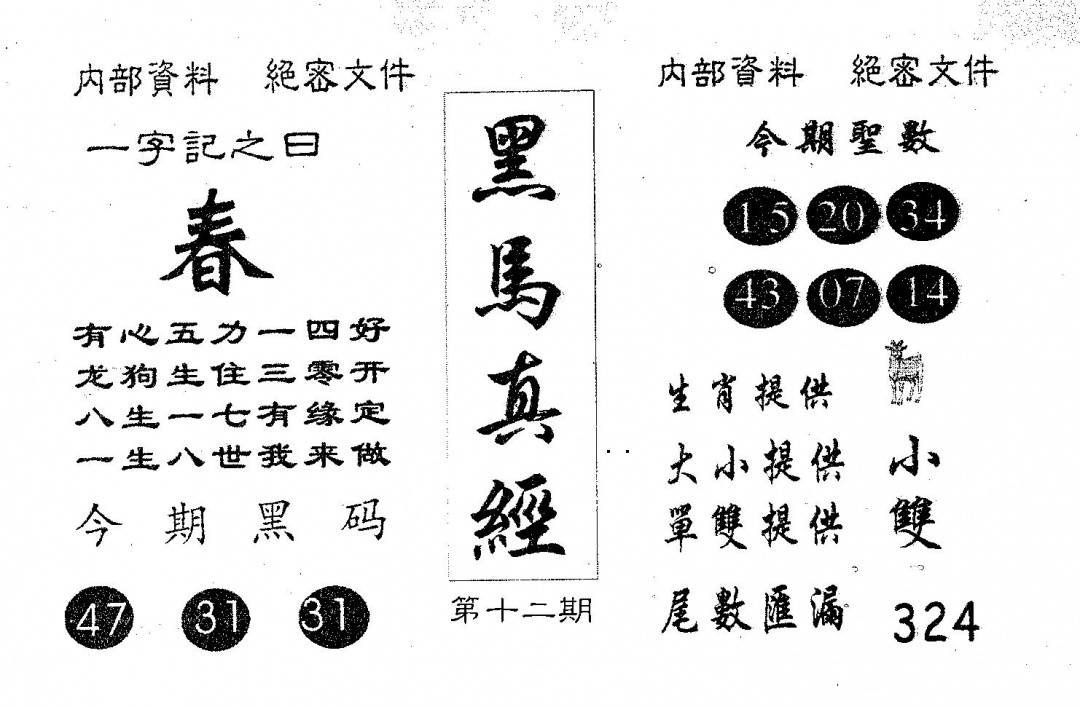 内部資料 絕密文件
一字記之曰
春
有心五力一四好
龙狗生住三零开
八生一七有缘定
一生八世我来做
今期黑码
47 31 31
黑馬真經
第十二期
内部資料 絕密文件
今期聖數
15 20 34
43 07 14
生肖提供
大小提供 小
單雙提供 雙
尾數匯漏 324